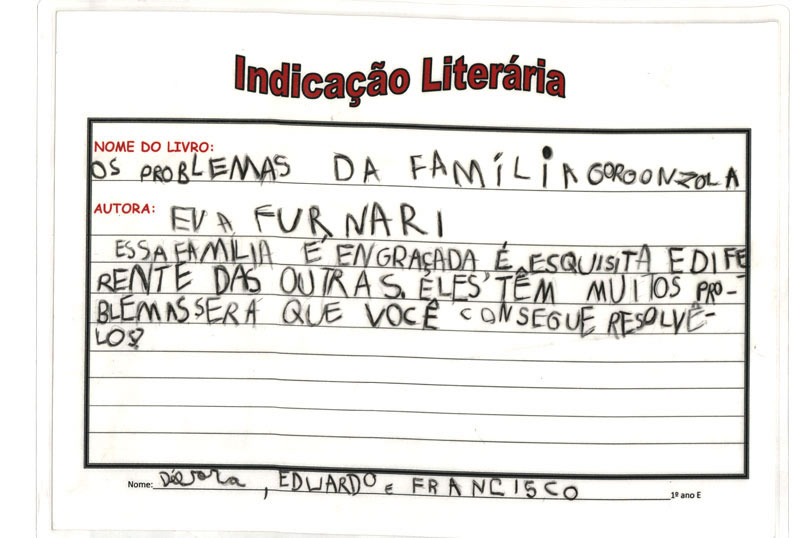 Indicação Literária
NOME DO LIVRO:
OS PROBLEMAS DA FAMÍLIA GORGONZOLA
AUTORA: EVA FURNARI
ESSA FAMÍLIA É ENGRAÇADA É ESQUISITA E DIFE
RENTE DAS OUTRAS. ELES TÊM MUITOS PRO-
BLEMAS SERÁ QUE VOCÊ CONSEGUE RESOLVÊ-
LOS?
Nome: Débora, EDUARDO E FRANCISCO 1º ano E